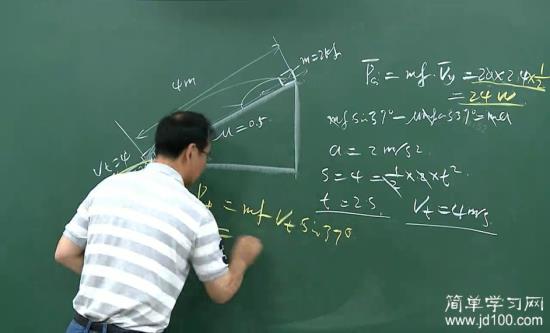 4m
m=2kg
μ=0.5
Vt=4
P̄G = mg·V̄y = 20×2.4×1/2
= 24W
mgsin37° − μmgcos37° = ma
a = 2m/s²
S = 4 = 1/2 × 2 × t²
t = 2s Vt = 4m/s
= mg Vt Sin37°
简单学习网
www.jd100.com